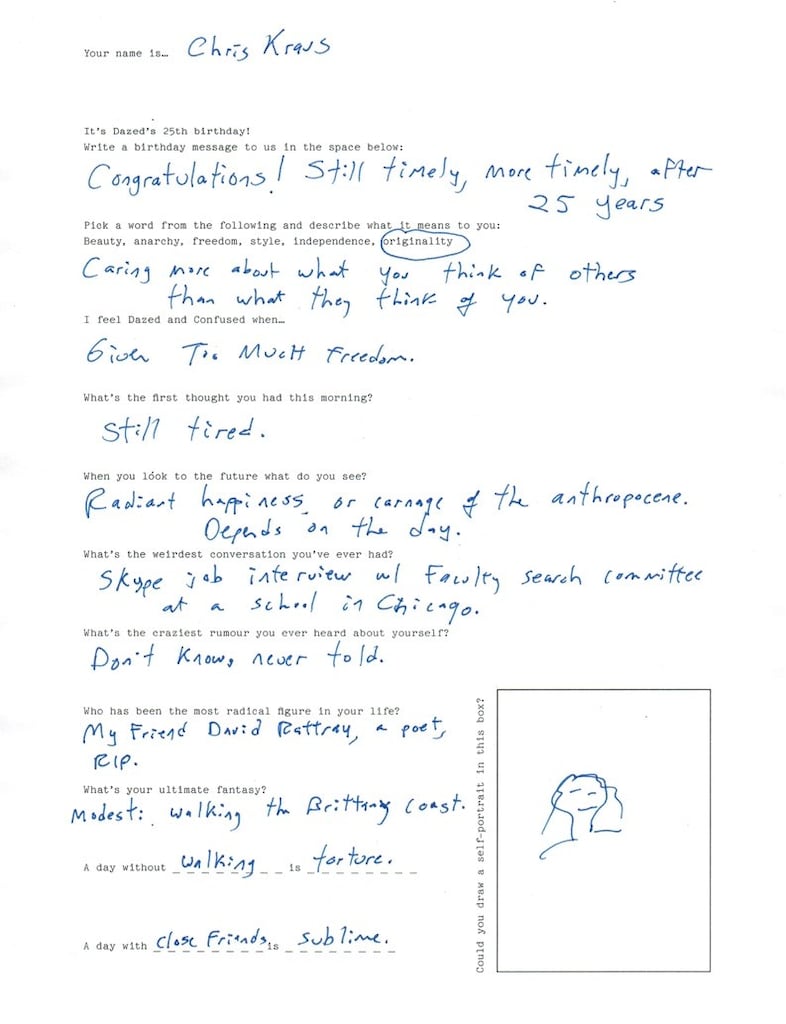 Your name is… Chris Kraus
It's Dazed's 25th birthday!
Write a birthday message to us in the space below:
Congratulations! Still timely, more timely, after
25 years
Pick a word from the following and describe what it means to you:
Beauty, anarchy, freedom, style, independence, originality
Caring more about what you think of others
than what they think of you.
I feel Dazed and Confused when…
Given Too MucH Freedom.
What's the first thought you had this morning?
Still tired.
When you look to the future what do you see?
Radiant happiness, or carnage of the anthropocene.
Depends on the day.
What's the weirdest conversation you've ever had?
Skype job interview w/ Faculty search committee
at a school in Chicago.
What's the craziest rumour you ever heard about yourself?
Don't know, never told.
Who has been the most radical figure in your life?
My Friend David Rattray, a poet,
RIP.
What's your ultimate fantasy?
Modest: walking the Brittany coast.
A day without walking is torture.
A day with close Friends is sublime.
Could you draw a self-portrait in this box?